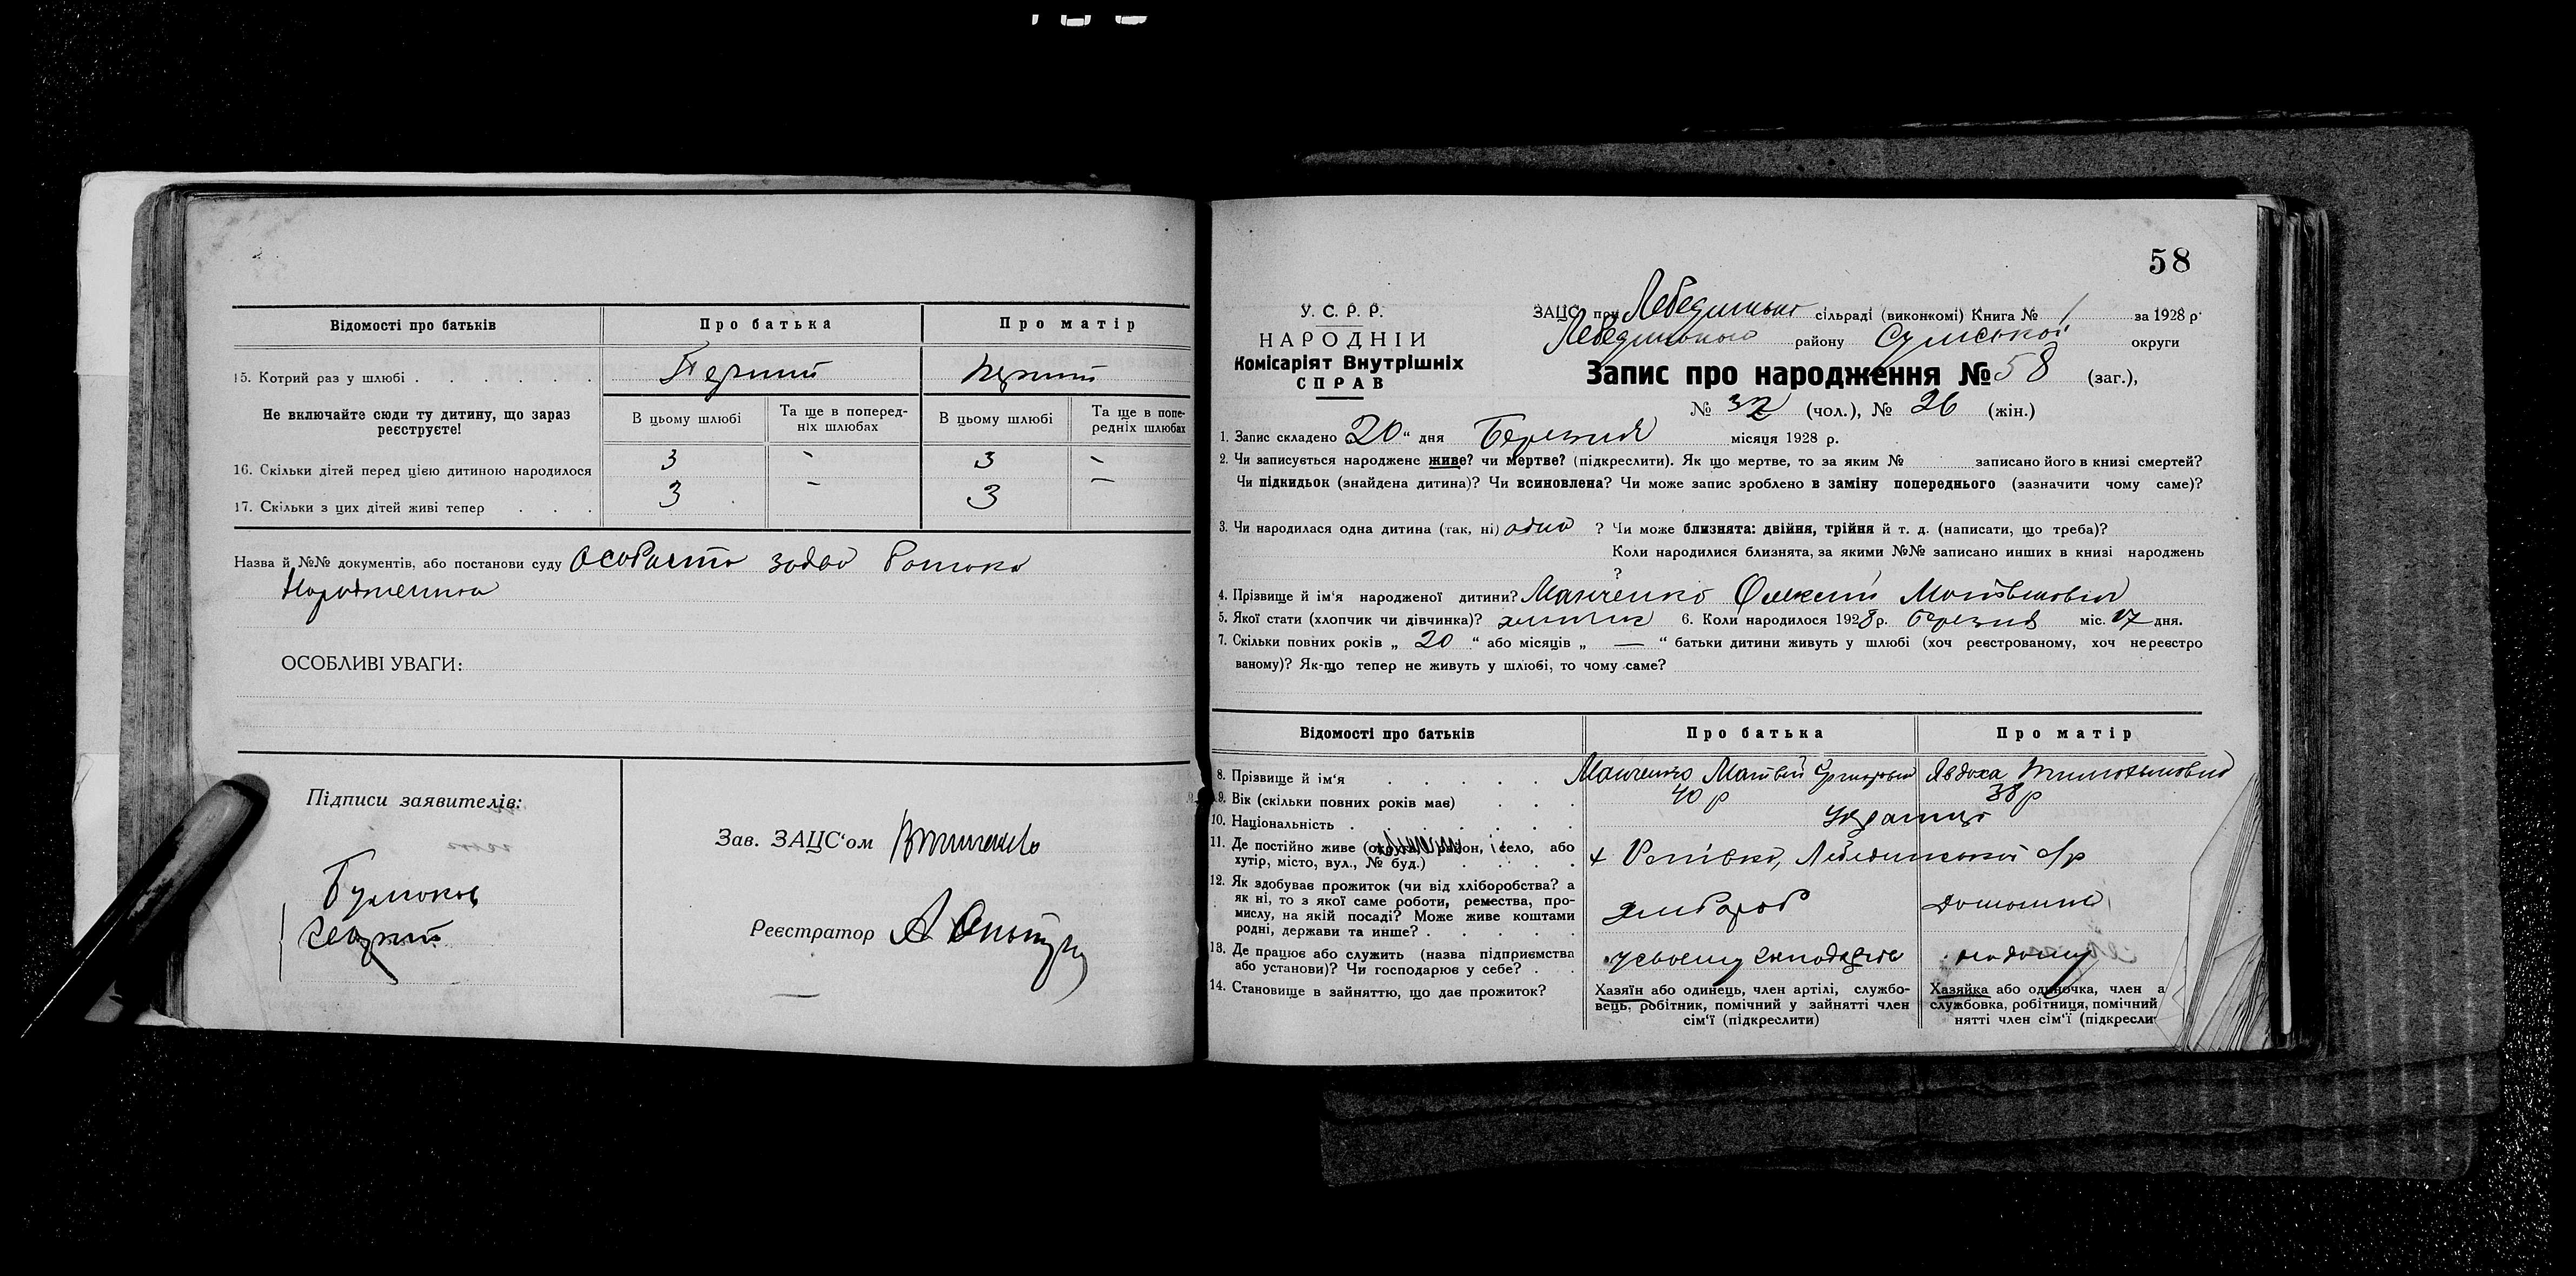 Відомості про батьків Про батька Про матір
15. Котрий раз у шлюбі Перший перший
Не включайте сюди ту дитину, що зараз реєструєте!
В цьому шлюбі Та ще в попередніх шлюбах В цьому шлюбі Та ще в попередніх шлюбах
16. Скільки дітей перед цією дитиною народилося 3 - 3 -
17. Скільки з цих дітей живі тепер 3 - 3 -
Назва й №№ документів, або постанови суду Особиста
ОСОБЛИВІ УВАГИ:
Підписи заявителів:
Зав. ЗАЦС‘ом
Реєстратор
58
У. С. Р. Р.
НАРОДНІЙ
Комісаріят Внутрішніх
СПРАВ
ЗАЦС при Лебединській сільраді (виконкомі) Книга № 1 за 1928 р.
Лебединського району Сумської округи
Запис про народження № 58 (заг.),
№ 32 (чол.), № 26 (жін.)
1. Запис складено „20“ дня Березня місяця 1928 р.
2. Чи записується народжене живе? чи мертве? (підкреслити). Як що мертве, то за яким № записано його в книзі смертей?
Чи підкидьок (знайдена дитина)? Чи всиновлена? Чи може запис зроблено в заміну попереднього (зазначити чому саме)?
3. Чи народилася одна дитина (так, ні) одна ? Чи може близнята: двійня, трійня й т. д. (написати, що треба)?
Коли народилися близнята, за якими №№ записано инших в книзі народжень
?
4. Прізвище й ім‘я народженої дитини? Олексій Матвійович
5. Якої стати (хлопчик чи дівчинка)? хлопчик 6. Коли народилося 1928 р. Березня міс. 17 дня.
7. Скільки повних років „ 20 “ або місяців „ — “ батьки дитини живуть у шлюбі (хоч реєстрованому, хоч нереєстро
ваному)? Як-що тепер не живуть у шлюбі, то чому саме?
Відомості про батьків Про батька Про матір
8. Прізвище й ім‘я Матвій Явдоха Тимохвіовна
9. Вік (скільки повних років має) 40 р 38 р
10. Національність Українці
11. Де постійно живе (округа, район, село, або
хутір, місто, вул., № буд.) х Лебединської с/р
12. Як здобуває прожиток (чи від хліборобства? а
як ні, то з якої саме роботи, ремества, про-
мислу, на якій посаді? Може живе коштами
родні, держави та инше? хлібороб домашня
13. Де працює або служить (назва підприємства
або установи)? Чи господарює у себе? у своєму господарстві на дому
14. Становище в зайняттю, що дає прожиток?
Хазяїн або одинець, член артілі, службо-
вець, робітник, помічний у зайнятті член
сім‘ї (підкреслити)
Хазяйка або одиночка, член а
службовка, робітниця, помічний
нятті член сім‘ї (підкресли